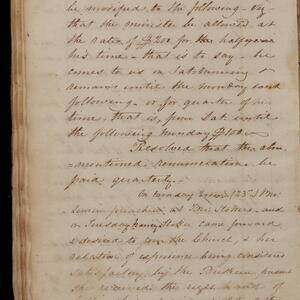 be modified to the following - viz
that the minister be allowed at
the rates of $200 for the half of
his time - that is to say - he
comes to us on Sat. and
remains until the monday
following - or for quarter of his
time, that is, from Sat. until
the following monday $100.
Resolved that the above
-mentioned remuneration be
paid quarterly.
On monday
preached at Bro. and
on Tuesday came forward
& desired to the Church, & her
relation of experience being considered
satisfactory by the Brethren present
she received the right hand of